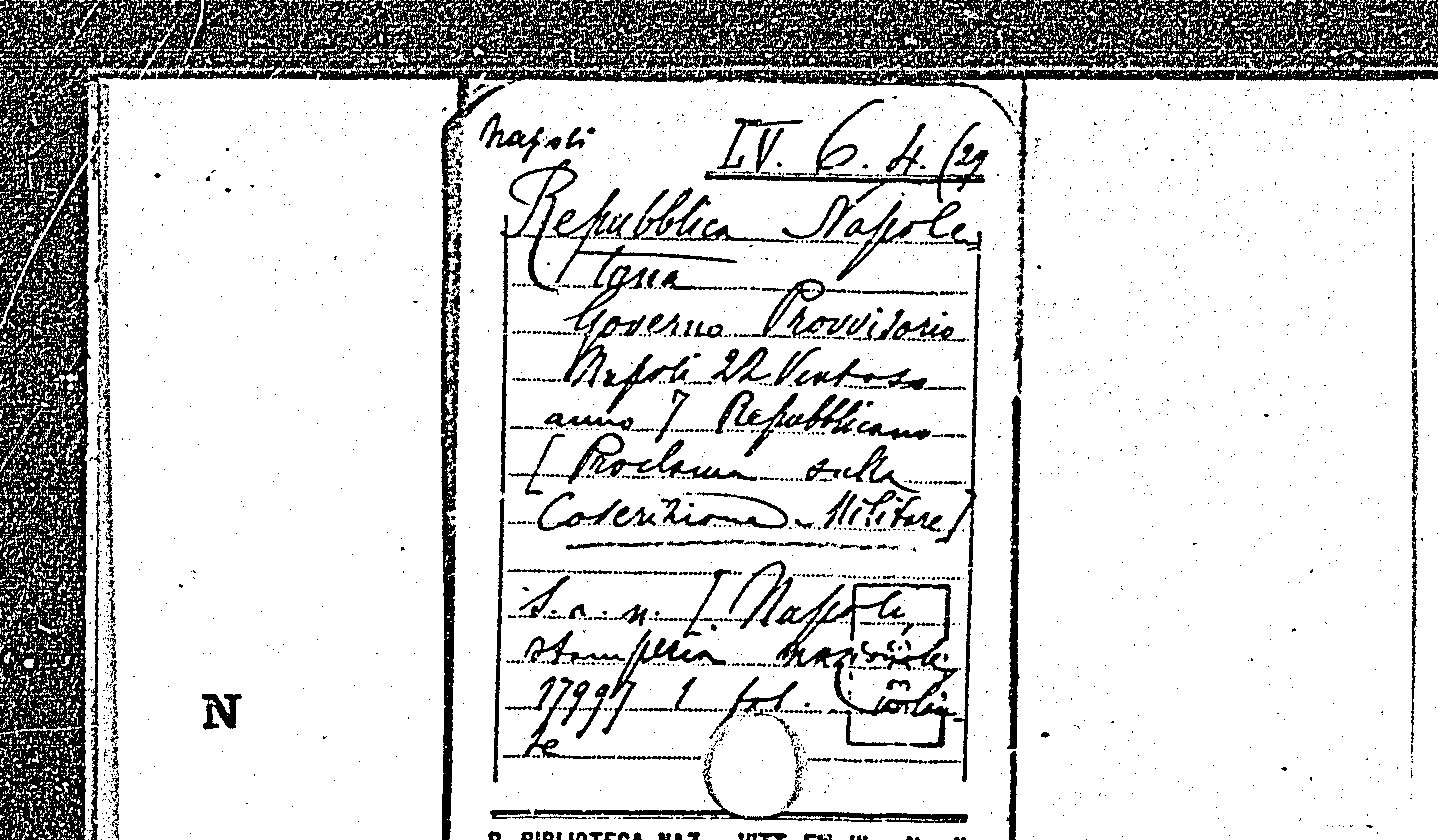 Napoli
IV. 6. 4. (29
Repubblica Napole
tana
Governo Provvisorio
Napoli 22 Ventoso
anno 7 Repubblicano
[Proclama sulla
Coscrizione Militare]
S. a. n. [Napoli,
stamperia nazionale,
1799] 1 fol. volan
te
N
R. BIBLIOTECA NAZ. VITT. EM.